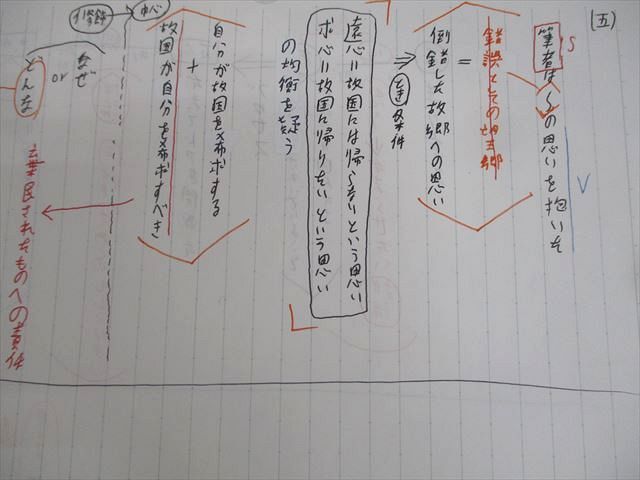 (五)
S
筆者は〜の思いを抱いた
V
錯誤としての望郷
=
倒錯した故郷への思い
⇒ とき 条件
遠心=故国には帰らないという思い
求心=故国に帰りたいという思い
の均衡を疑う
自分が故国を希求する
+
故国が自分を希求すべき
修飾→中心
なぜ
or
どんな
棄民されたものへの責任